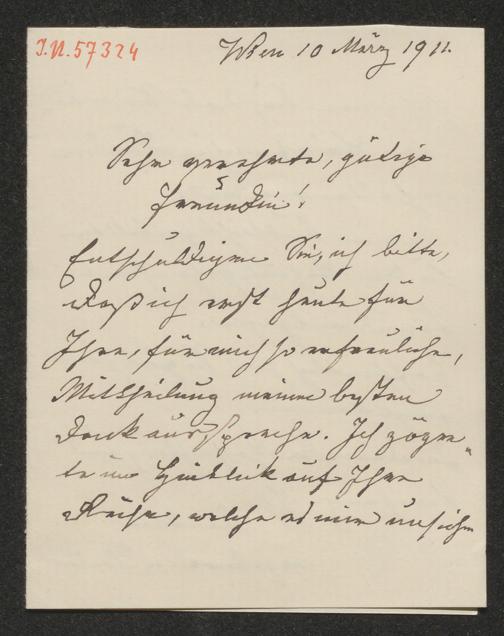 I.N. 57324
Wien 10 März 1911.
Sehr geehrte, gütige
Freundin!
Entschuldigen Sie, ich bitte,
daß ich erst heute für
Ihre, für mich so erfreuliche,
Mittheilung meinen besten
Dank ausspreche. Ich zöger-
te im Hinblick auf Ihre
Reise, welche es mir unsicher